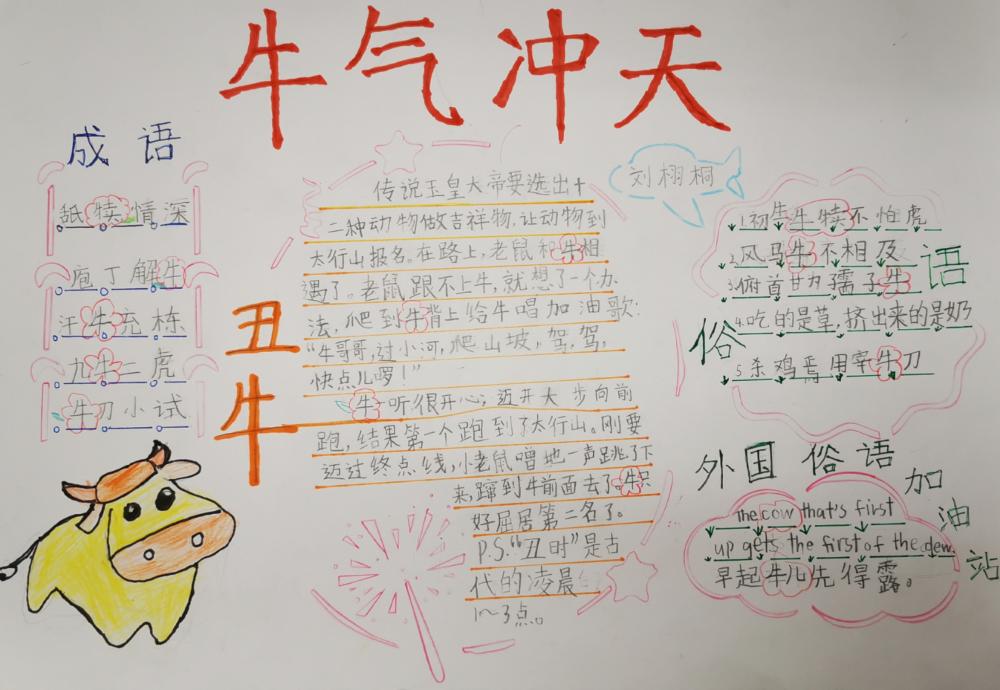 牛气冲天
成语
舐犊情深
庖丁解牛
汗牛充栋
九牛二虎
牛刀小试
丑牛
传说玉皇大帝要选出十
二种动物做吉祥物,让动物到
太行山报名。在路上,老鼠和牛相
遇了。老鼠跟不上牛,就想了一个办
法,爬到牛背上给牛唱加油歌:
“牛哥哥,过小河,爬山坡,驾,驾,
快点儿啰!”
牛一听很开心;迈开大步向前
跑,结果第一个跑到了太行山。刚要
迈过终点线,小老鼠噌地一声跳了下
来,蹿到牛前面去了。牛只
好屈居第二名了。
P.S.“丑时”是古
代的凌晨
1~3点。
刘栩桐
俗语
1.初生牛犊不怕虎
2.风马牛不相及
3.俯首甘为孺子牛
4.吃的是草,挤出来的是奶
5.杀鸡焉用宰牛刀
外国俗语
加油站
the cow that's first
up gets the first of the dew.
早起牛儿先得露。